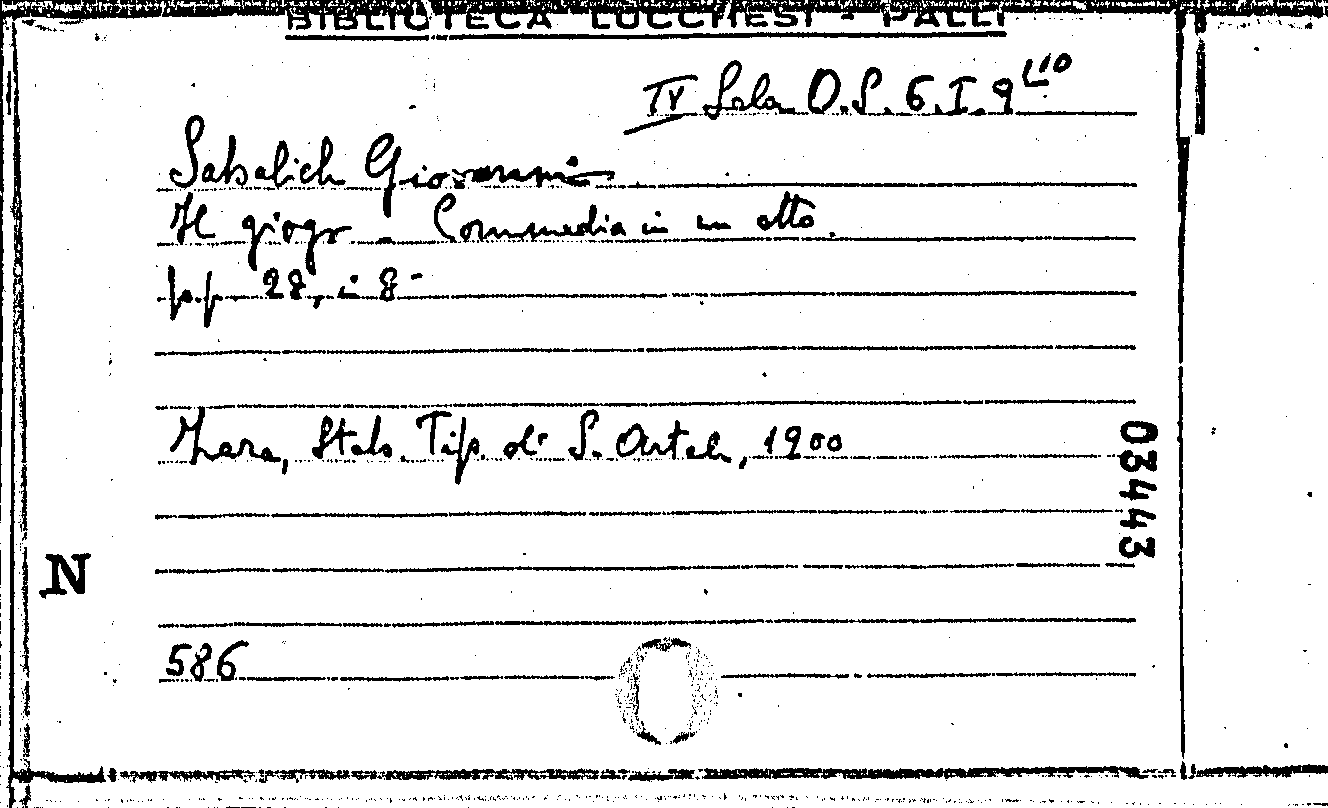 BIBLIOTECA LUCCHESI - PALLI
IV Sala O.S. 6.I.9 (10
Sabalich Giovanni
Il giogo - Commedia in un atto.
pp. 28, in 8°
Zara, Stab. Tip. di S. Artale, 1900
03443
N
586